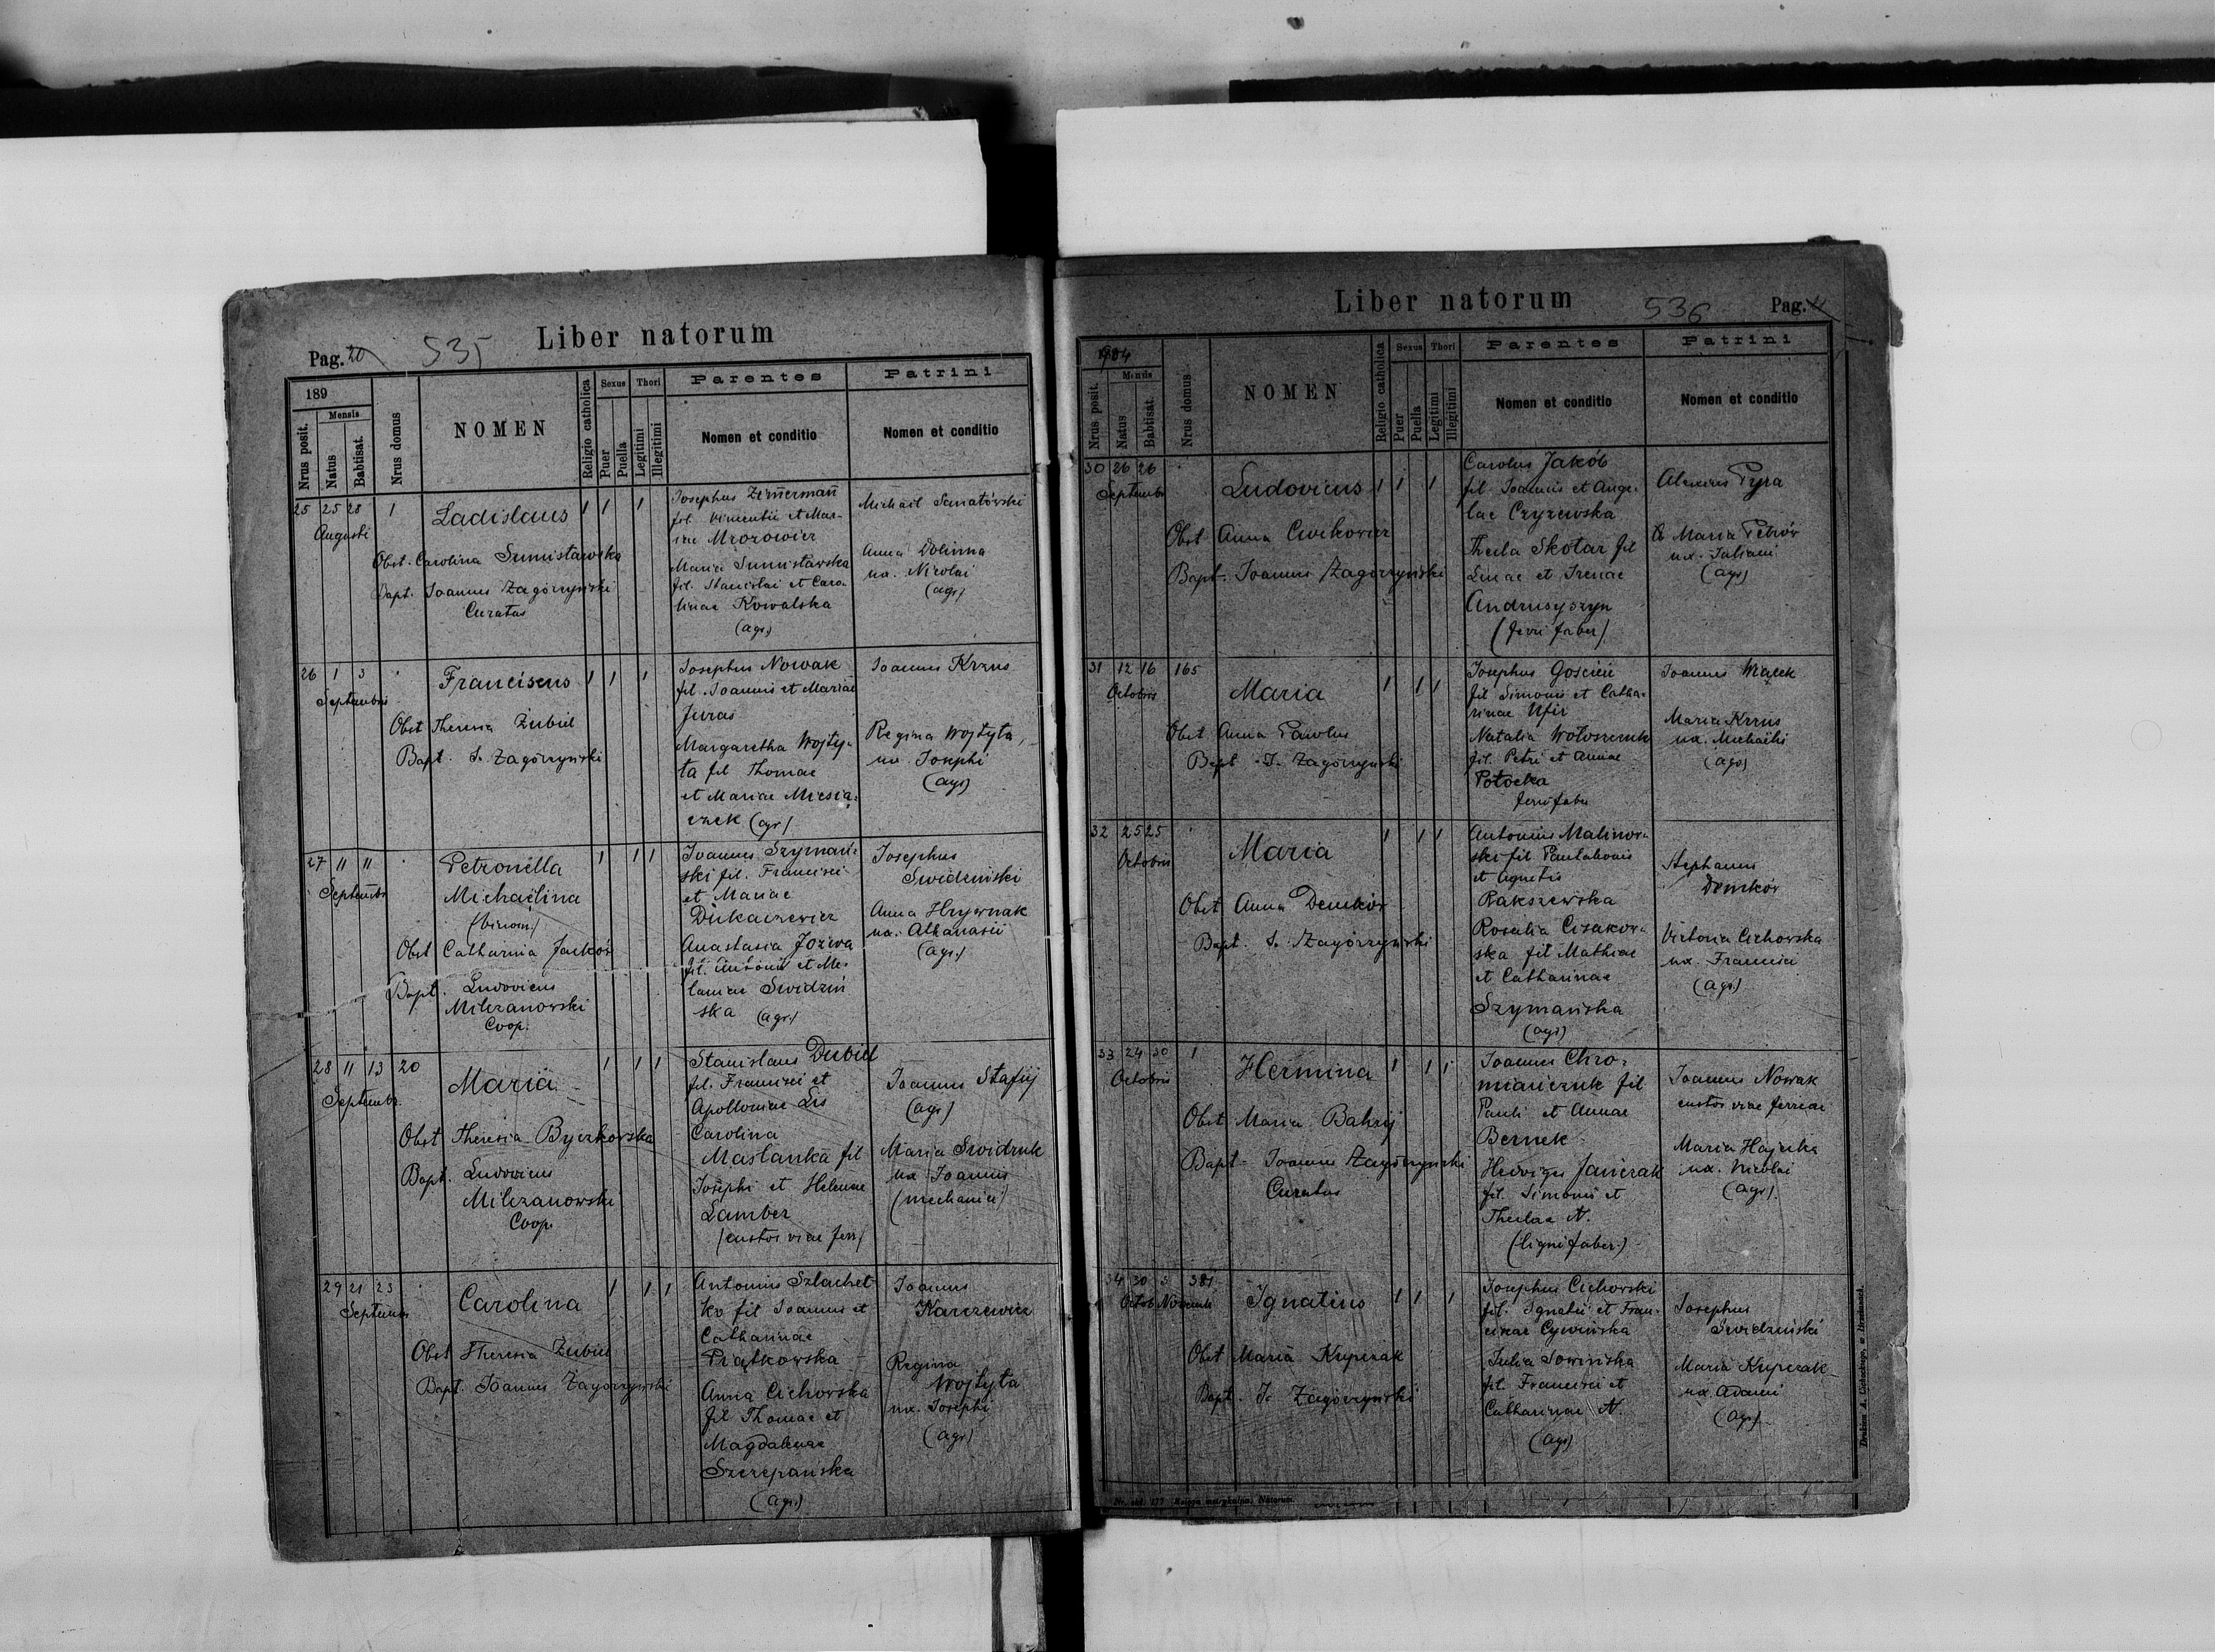 Liber natorum
Pag. 20 535
189
Mensis
Nrus posit.
Natus
Babtisat.
Nrus domus
NOMEN
Religio catholica
Sexus
Puer
Puella
Thori
Legitimi
Illegitimi
Parentes
Nomen et conditio
Patrini
Nomen et conditio
25 25 28 1
Augusti
Ladislaus 1 1 1
Obst. Carolina Sumisławska
Bapt. Joannes Zagórzyński
Curatus
Josephus Zimmermann
fil. Vincentii et Mar-
iae Mrozowicz
Maria Sumisławska
fil. Stanislai et Caro-
linae Kowalska
(agr.)
Michael
Anna Dolinna
ux. Nicolai
(agr)
26 1 3
Septembris
Franciscus 1 1 1
Obst Theresia Zubiel
Bapt. J. Zagórzyński
Josephus Nowak
fil. Joannis et Mariae
Juras
Margaretha Wojty-
ła fil Thomae
et Mariae Miesia-
czek (agr)
Joannes Krzus
Regina Wojtyła,
ux. Josephi
(agr)
27 11 11
Septembr
Petronella
Michaëlina
(binom)
1 1 1
Obst Catharina Janków
Bapt. Ludovicus
Milczanowski
Coop.
Joannes Szymań-
ski fil. Francisci
et Mariae
Dukaczewicz
Anastasia Józwa
fil. Antonii et Me-
laniae Swidziń
ska (agr.)
Josephus
Swidziński
Anna Hrywnak
ux. Athanasii
(agr.)
28 11 13 20
Septembr.
Maria 1 1 1
Obst Theresia Byczkowska
Bapt. Ludovicus
Milczanowski
Coop.
Stanislaus Dubiel
fil. Francisci et
Apolloniae Lis
Carolina
Maslanka fil
Josephi et Helenae
Lamber
(custos viae ferr)
Joannes Stafij
(agr)
Maria Swidruk
ux Joannis
(mechanici)
29 21 23
Septembr
Carolina 1 1 1
Obst Theresia Zubiel
Bapt. Joannes Zagórzyński
Antonius Szlachet-
ko fil Joannis et
Catharinae
Piątkowska
Anna Cichowska
fil Thomae et
Magdalenae
Szczepańska
(agr.)
Joannes
Karczewicz
Regina
Wojtyła
ux. Josephi
(agr)
Liber natorum
536 Pag.
1904
Mensis
Nrus posit.
Natus
Babtisat.
Nrus domus
NOMEN
Religio catholica
Sexus
Puer
Puella
Thori
Legitimi
Illegitimi
Parentes
Nomen et conditio
Patrini
Nomen et conditio
30 26 26
Septembr
Ludovicus 1 1 1
Obst Anna Cwikowicz
Bapt. Joannes Zagórzyński
Carolus Jakób
fil. Joannis et Ange-
lae Czyzewska
Thecla Skotar fil
Lucae et Irenae
Andrusyszyn
(ferri faber)
Alexius Pyra
Maria Petrów
ux. Juliani
(agr)
31 12 16 165
Octobris
Maria 1 1 1
Obst Anna Pawlus
Bapt. J. Zagórzyński
Josephus Goscień
fil Simonis et Catha-
rinae Ufir
Natalia Wołoszczuk
fil. Petri et Annae
Potocka
ferri faber
Joannes Wącek
Maria Krzus
ux. Michaëlis
(agr)
32 25 25
Octobris
Maria 1 1 1
Obst Anna Demków
Bapt. J. Zagórzyński
Antonius Malinow-
ski fil Pantaleonis
et Agnetis
Rakszewska
Rosalia Cisakow-
ska fil Mathiae
et Catharinae
Szymańska
(agr)
Stephanus
Demków
Victoria Cichowska
ux. Francisci
(agr)
33 24 30 1
Octobris
Hermina 1 1 1
Obst Maria Bahrij
Bapt. Joannes Zagórzyński
Curatus
Joannes Chro-
mianczuk fil
Pauli et Annae
Bernek
Hedvigis Janczak
fil. Simonis et
Theclae N.
(ligni faber)
Joannes Nowak
custos viae ferreae
Maria Hajuka
ux. Nicolai
(agr).
34 30 3 381
Octob Novemb
Ignatius 1 1 1
Obst Maria Kupczak
Bapt. J. Zagórzyński
Josephus Cichowski
fil. Ignatii et Fran-
ciscae Cywińska
Julia Sowińska
fil. Francisci et
Catharinae N.
(agr)
Josephus
Swidziński
Maria Kupczak
ux. Adami
(agr)
Księga metrykalna, Natorum